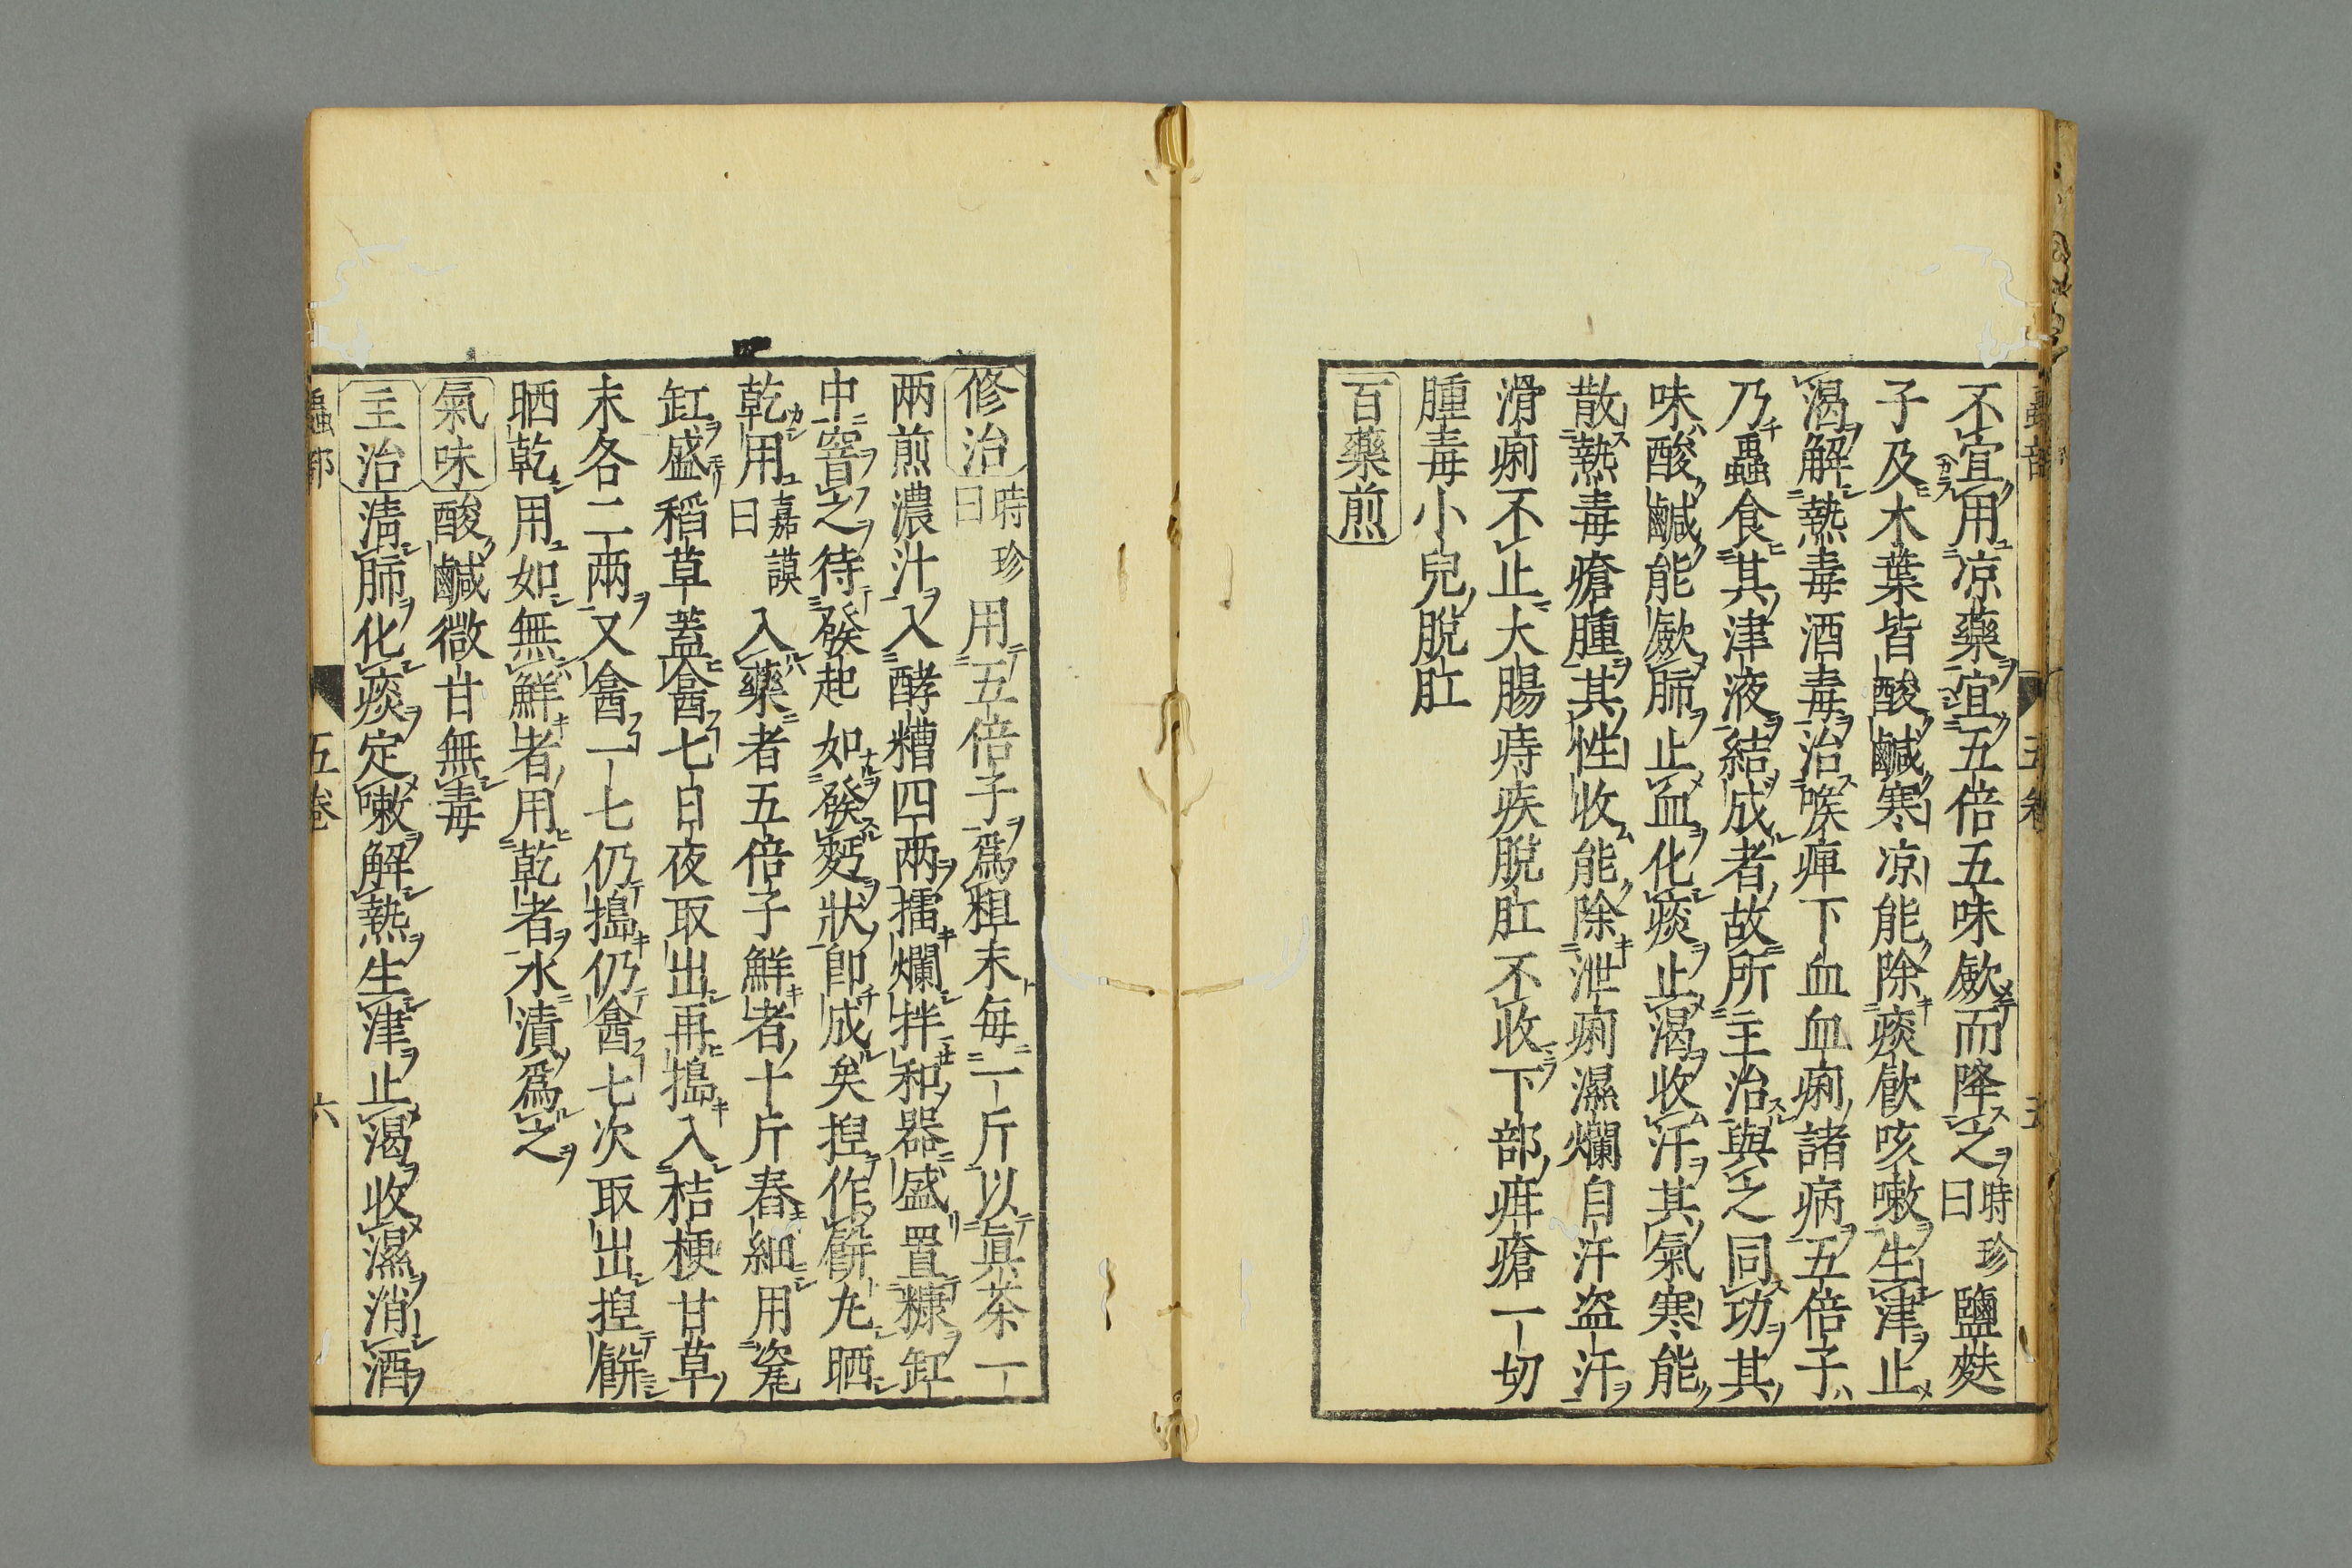 不宜用凉藥宜五倍五味歛而降之時珍曰鹽麩
子及木葉皆酸鹹寒凉能除痰飮咳嗽生津止
渴解熱毒酒毒治喉痺下血血痢諸病五倍子
乃蟲食其津液結成者故所主治與之同功其
味酸鹹能歛肺止血化痰止渴收汗其氣寒能
散熱毒瘡腫其性收能除泄痢濕爛自汗盗汗
滑痢不止大腸痔疾脫肛不收下部疳瘡一切
腫毒小兒脫肛
百藥煎
修治時珍曰用五倍子爲粗末每一斤以眞茶一
兩煎濃汁入酵糟四兩擂爛拌和器盛置糠缸
中窨之待發起如發麪狀卽成矣揑作餠丸晒
乾用嘉謨曰入藥者五倍子鮮者十斤舂細用瓷
缸盛稻草蓋盦七日夜取出再搗入桔梗甘草
末各二兩又盦一七仍搗仍盦七次取出揑餠
晒乾用如無鮮者用乾者水漬爲之
氣味酸鹹微甘無毒
主治淸肺化痰定嗽解熱生津止渴收濕消酒
蟲部 五卷 六